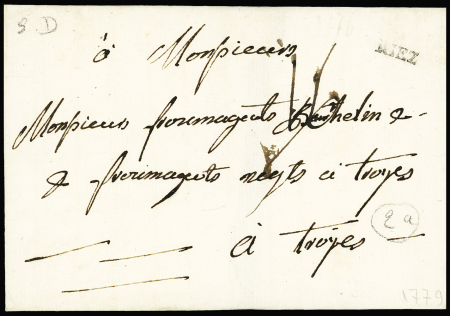 S D
RIEZ
à Monsieurs
Monsieurs fromageots Berthelin &
& fromageots negts à troyes
2a
à troyes
1779